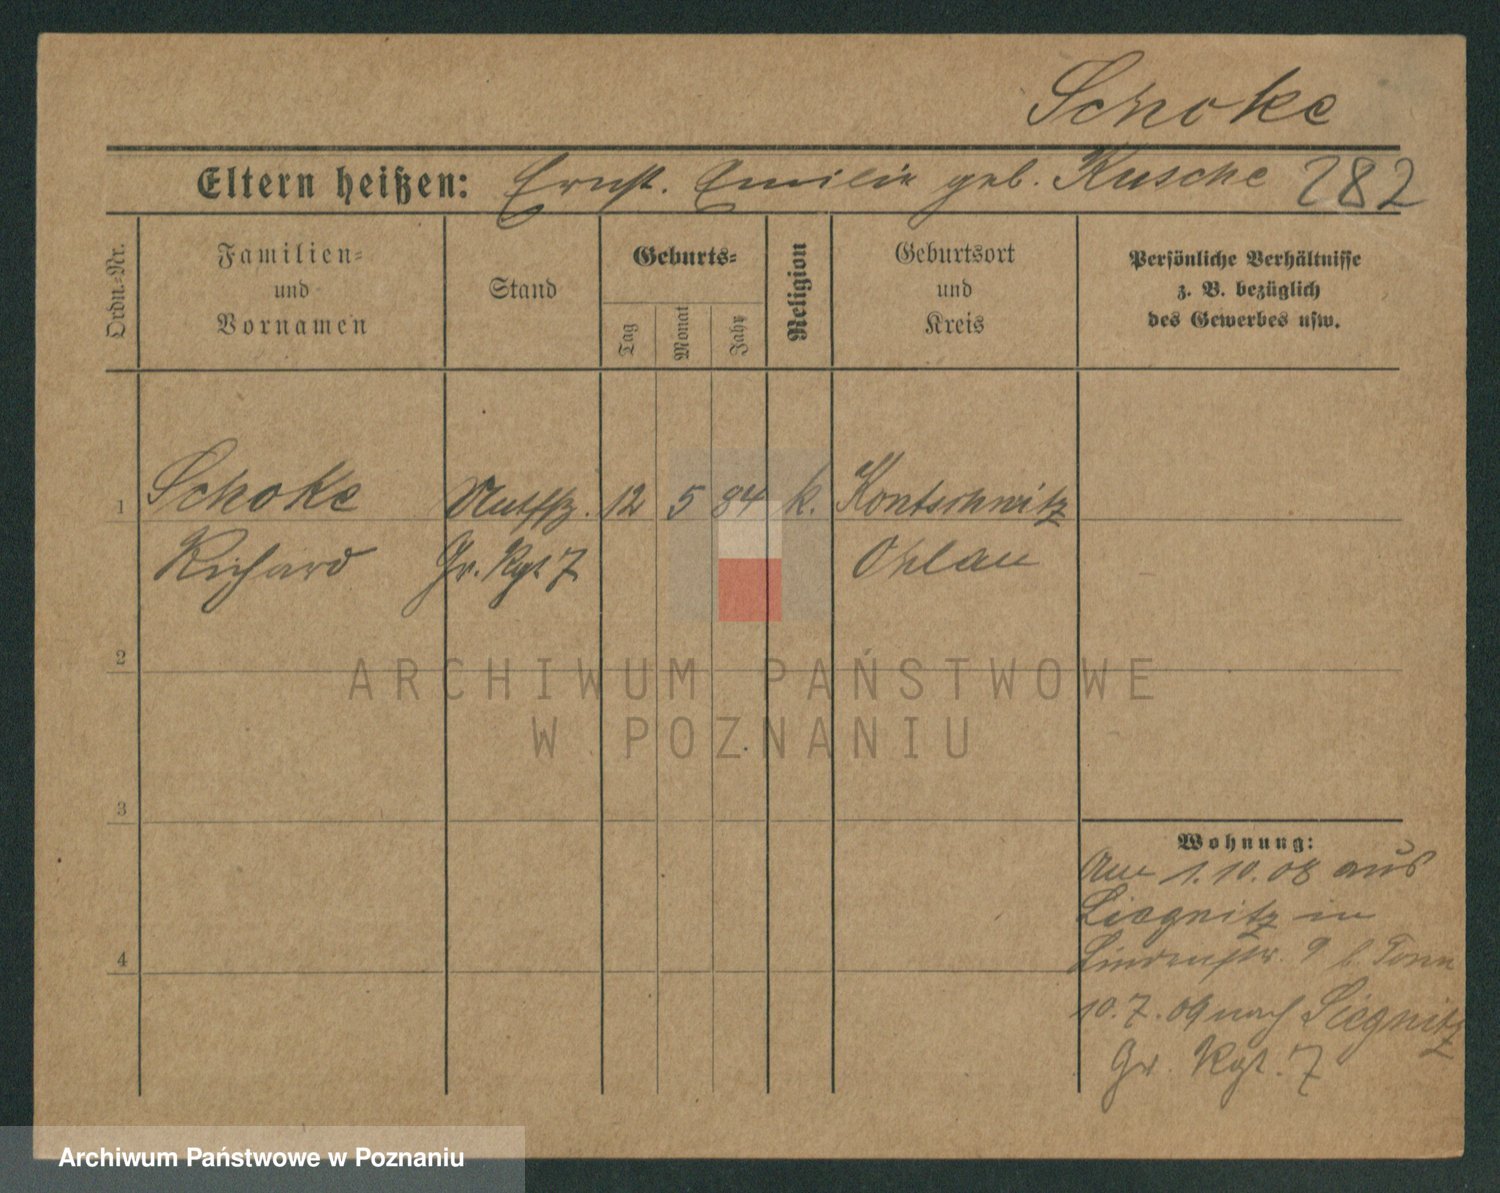 Schoke
Eltern heißen: Ernst. Emilie geb. Kusche 282
Ordn.-Nr.
Familien-
und
Vornamen
Stand
Geburts-
Tag
Monat
Jahr
Religion
Geburtsort
und
Kreis
Persönliche Verhältnisse
z. B. bezüglich
des Gewerbes usw.
1 Schoke 12 5 84 k. Kontschwitz
Richard Gr. Rgt 7 Ohlau
2
3
4
Wohnung:
Am 1.10.08 aus
Liegnitz in
Lindenstr. 9 b.
10.7.09 nach Liegnitz
Gr. Rgt. 7
ARCHIWUM PAŃSTWOWE
W POZNANIU
Archiwum Państwowe w Poznaniu